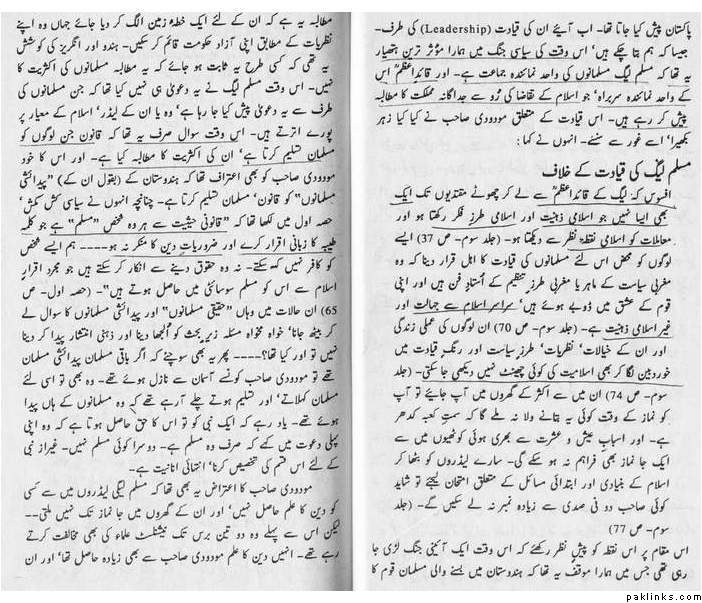 پاکستان پیش کیا جاتا تھا۔ اب آیئے ان کی قیادت (Leadership) کی طرف۔
جیسا کہ ہم بتا چکے ہیں' اس وقت کی سیاسی جنگ میں ہمارا مؤثر ترین ہتھیار
یہ تھا کہ مسلم لیگ مسلمانوں کی واحد نمائندہ جماعت ہے۔ اور قائداعظمؒ اس
کے واحد نمائندہ سربراہ' جو اسلام کے تقاضا کی رُو سے جداگانہ مملکت کا مطالبہ
پیش کر رہے ہیں۔ اس قیادت کے متعلق مودودی صاحب نے کیا کیا زہر
بکھیرا' اسے غور سے سنئے۔ انہوں نے کہا :
مسلم لیگ کی قیادت کے خلاف
افسوس کہ لیگ کے قائداعظمؒ سے لے کر چھوٹے مقتدیوں تک ایک
بھی ایسا نہیں جو اسلامی ذہنیت اور اسلامی طرزِ فکر رکھتا ہو اور
معاملات کو اسلامی نقطۂ نظر سے دیکھتا ہو۔ (جلد سوم۔ ص 37) ایسے
لوگوں کو محض اس لئے مسلمانوں کی قیادت کا اہل قرار دینا کہ وہ
مغربی سیاست کے ماہر یا مغربی طرز تنظیم کے اُستادِ فن ہیں اور اپنی
قوم کے عشق میں ڈوبے ہوئے ہیں' سراسر اسلام سے جہالت اور
غیر اسلامی ذہنیت ہے۔ (جلد سوم۔ ص 70) ان لوگوں کی عملی زندگی
اور ان کے خیالات' نظریات' طرزِ سیاست اور رنگِ قیادت میں
خوردبین لگا کر بھی اسلامیت کی کوئی چھینٹ نہیں دیکھی جا سکتی۔ (جلد
سوم۔ ص 74) ان میں سے اکثر کے گھروں میں آپ جایئے تو آپ
کو نماز کے وقت کوئی یہ بتانے والا نہ ملے گا کہ سمتِ کعبہ کدھر
ہے۔ اور اسبابِ عیش و عشرت سے بھری ہوئی کوٹھیوں میں سے
ایک جا نماز بھی فراہم نہ ہو سکے گی۔ سارے لیڈروں کو بٹھا کر
اسلام کے بنیادی اور ابتدائی مسائل کے متعلق امتحان لیجئے تو شاید
کوئی صاحب دو فی صدی سے زیادہ نمبر نہ لے سکیں گے۔ (جلد
سوم۔ ص 77)
اس مقام پر اس نقطہ کو پیشِ نظر رکھئے کہ اس وقت ایک آئینی جنگ لڑی جا
رہی تھی جس میں ہمارا موقف یہ تھا کہ ہندوستان میں بسنے والی مسلمان قوم کا
مطالبہ یہ ہے کہ ان کے لئے ایک خطۂ زمین الگ کر دیا جائے جہاں وہ اپنے
نظریات کے مطابق اپنی آزاد حکومت قائم کر سکیں۔ ہندو اور انگریز کی کوشش
یہ تھی کہ کسی طرح یہ ثابت ہو جائے کہ یہ مطالبہ مسلمانوں کی اکثریت کا
نہیں۔ اس وقت مسلم لیگ نے یہ دعویٰ ہی نہیں کیا تھا کہ جن مسلمانوں کی
طرف سے یہ دعویٰ پیش کیا جا رہا ہے' وہ یا ان کے لیڈر' اسلام کے معیار پر
پورے اترتے ہیں۔ اس وقت سوال صرف یہ تھا کہ قانون جن لوگوں کو
مسلمان تسلیم کرتا ہے' ان کی اکثریت کا مطالبہ کیا ہے۔ اور اس کا خود
مودودی صاحب کو بھی اعتراف تھا کہ ہندوستان کے (بقول ان کے) "پیدائشی
مسلمانوں" کو قانون' مسلمان تسلیم کرتا ہے۔ چنانچہ انہوں نے سیاسی کش مکش'
حصہ اول میں لکھا تھا کہ "قانونی حیثیت سے ہر وہ شخص "مسلم" ہے جو کلمہ
طیبہ کا زبانی اقرار کرے اور ضروریاتِ دین کا منکر نہ ہو---- ہم ایسے شخص
کو کافر نہیں کہہ سکتے۔ نہ وہ حقوق دینے سے انکار کر سکتے ہیں جو بمجرد اقرارِ
اسلام سے اس کو مسلم سوسائٹی میں حاصل ہوتے ہیں"۔ (حصہ اول۔ ص
65) ان حالات میں وہاں "حقیقی مسلمانوں" اور پیدائشی مسلمانوں کا سوال لے
کر بیٹھ جانا' خواہ مخواہ مسئلہ زیرِ بحث کو اُلجھا دینا اور ذہنی انتشار پیدا کر دینا
نہیں تو اور کیا تھا؟---- پھر یہ بھی سوچئے کہ اگر باقی مسلمان پیدائشی مسلمان
تھے تو مودودی صاحب کونسے آسمان سے نازل ہوئے تھے۔ وہ بھی تو اسی لئے
مسلمان کہلاتے' اور تسلیم ہوتے چلے آ رہے تھے کہ وہ مسلمانوں کے ہاں پیدا
ہوئے تھے۔ یاد رہے کہ ایک نبی کو تو اس کا حق حاصل ہوتا ہے کہ وہ اپنی
پہلی دعوت میں کہے کہ صرف وہ مسلم ہے۔ دوسرا کوئی مسلم نہیں۔ غیراز نبی
کے لئے اس قسم کی تخصیص کرنا' انتہائی انانیت ہے۔
مودودی صاحب کا اعتراض یہ بھی تھا کہ مسلم لیگی لیڈروں میں سے کسی
کو دین کا علم حاصل نہیں' اور ان کے گھروں میں جا نماز تک نہیں ملتی---
لیکن اس سے پہلے وہ دو تین برس تک نیشنلسٹ علماء کی بھی مخالفت کرتے
رہے تھے۔ انہیں دین کا علم مودودی صاحب سے بھی زیادہ حاصل تھا' اور ان
paklinks.com